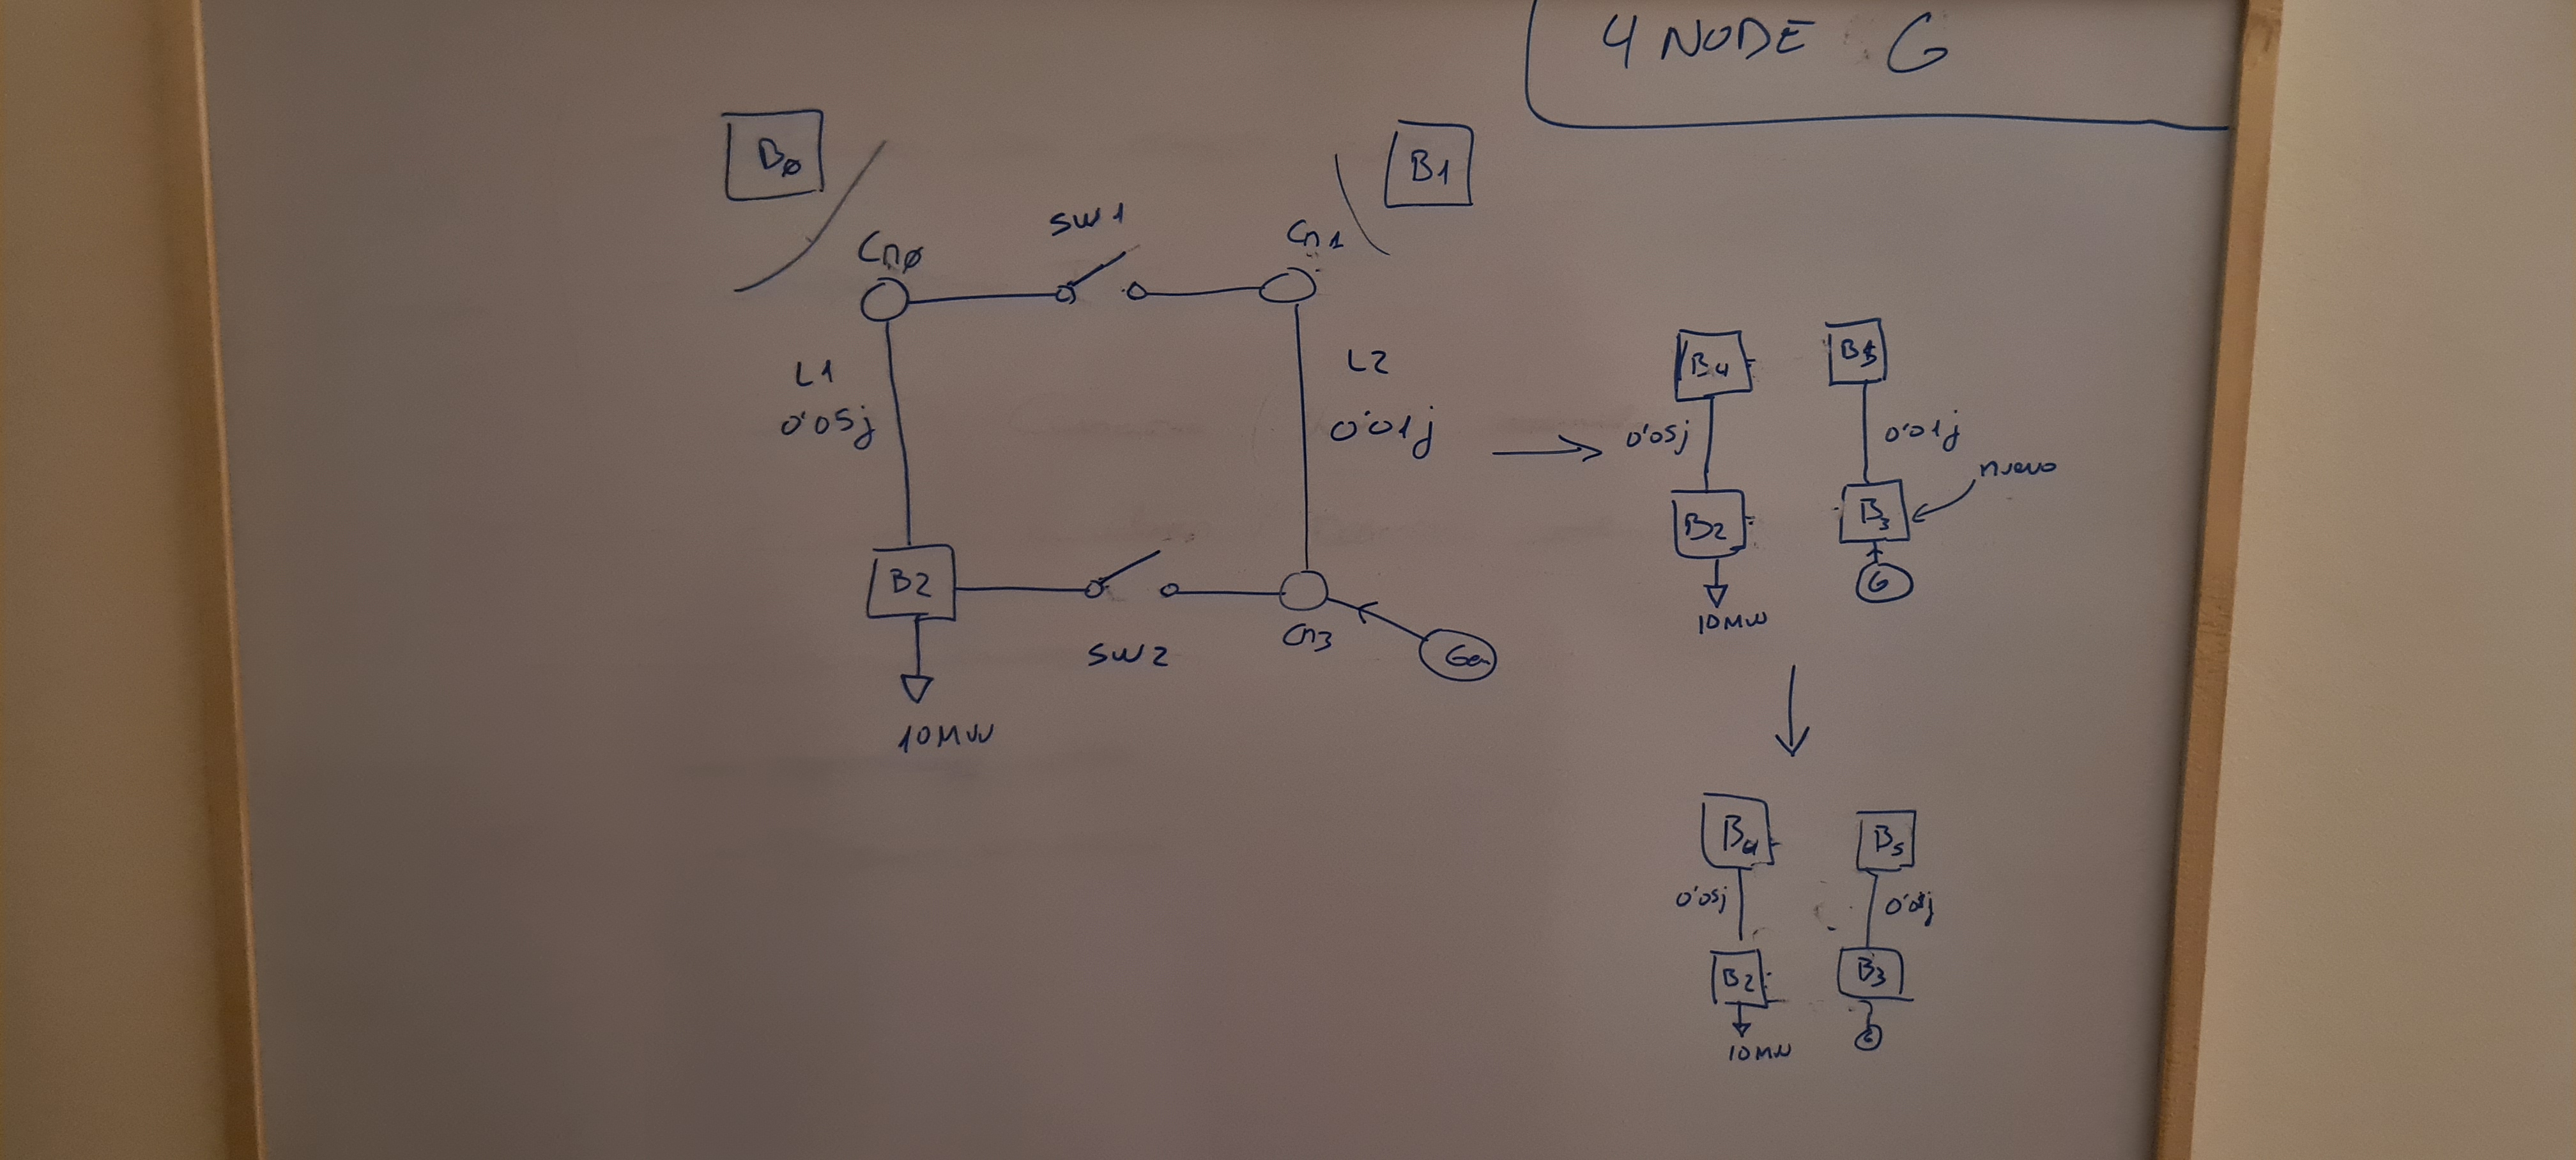 4 NODE G
Bø
B1
SW1
Cnø
Cn1
L1
0'05j
L2
0'01j
B2
SW2
Cn3
Gen
10MW
B4
B5
0'05j
0'01j
nuevo
B2
B3
G
10MW
B4
B5
0'05j
0'01j
B2
B3
G
10MW